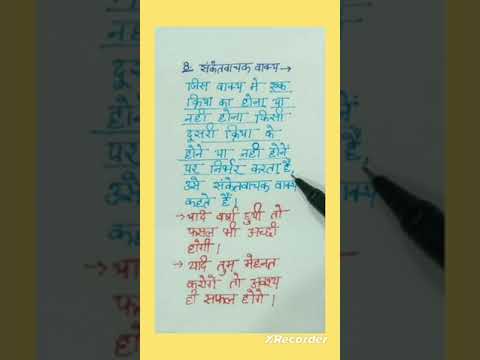 8. संकेतवाचक वाक्य →
जिस वाक्य में एक
क्रिया का होना या
नहीं होना किसी
दूसरी क्रिया के
होने या नहीं होने
पर निर्भर करता है,
उसे संकेतवाचक वाक्य
कहते हैं।
→ यदि वर्षा हुयी तो
फसल भी अच्छी
होगी।
→ यदि तुम मेहनत
करोगे तो अवश्य
ही सफल होगे।
XRecorder